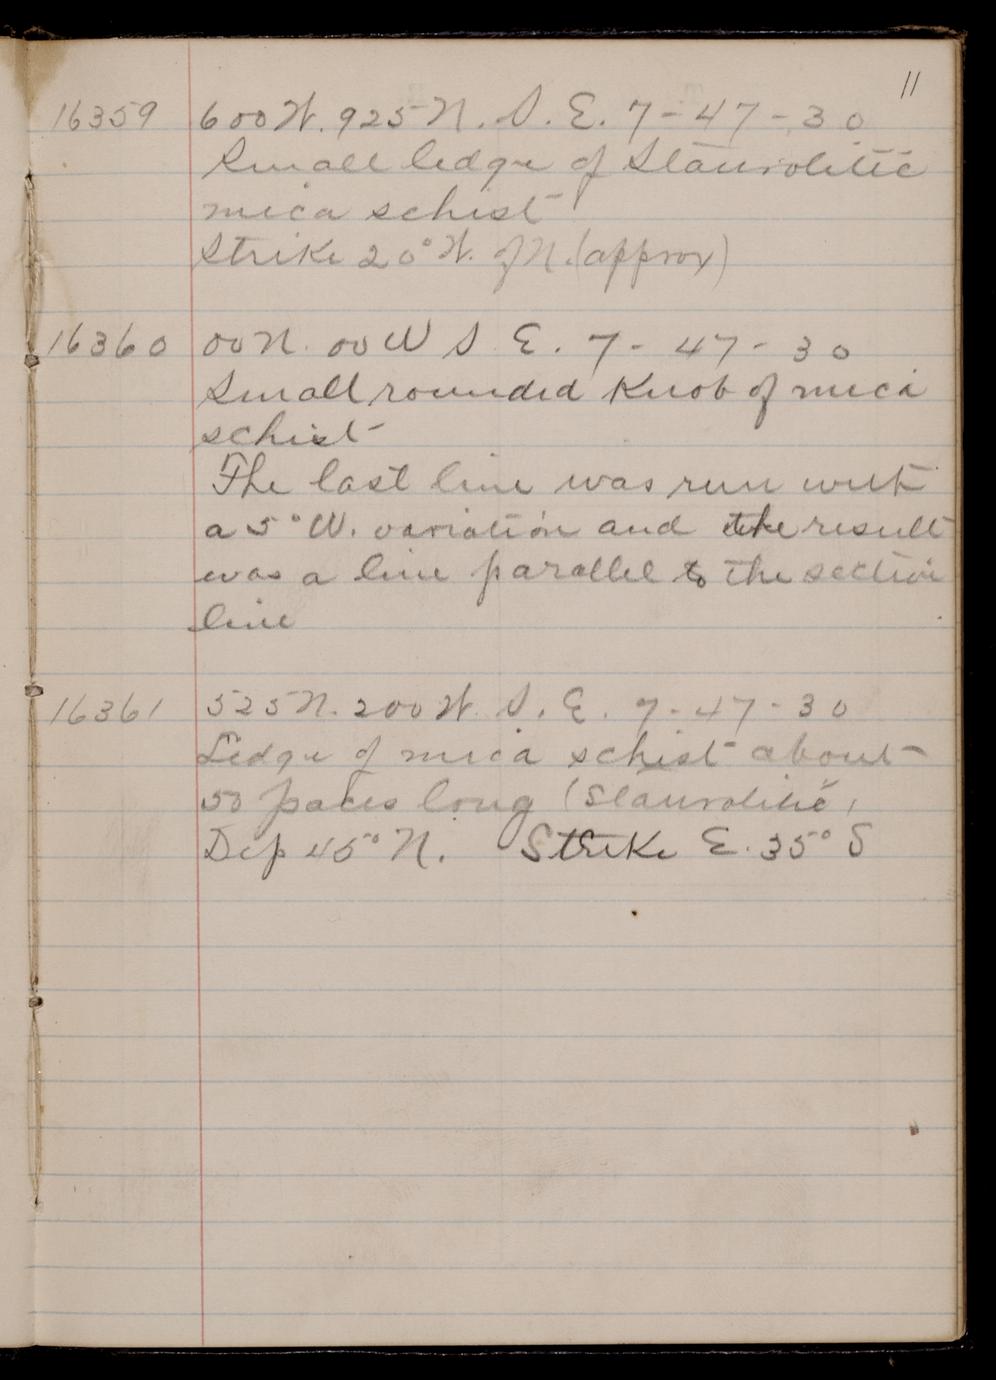 11
16359 600 W. 925 N. S. E. 7-47-30
Small ledge of Staurolitic
mica schist
Strike 20° W. of N. (approx)
16360 00 N. 00 W S. E. 7-47-30
Small rounded Knob of mica
schist
The last line was run with
a 5° W. variation and the result
was a line parallel to the section
line
16361 525 N. 200 W. S. E. 7-47-30
Ledge of mica schist about
50 paces long (Staurolitic)
Dip 45° N. Strike E. 35° S